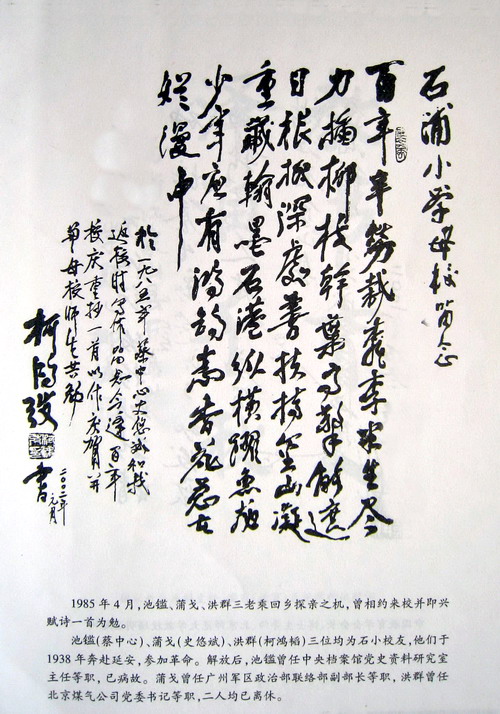 石浦小学母校留念
百年辛勞栽桃李半生尽
力插柳枝幹葉高擎能遮
日根抓深處善扶持金山凝
重藏翰墨石港纵横躍魚龍
少年应有鸿鹄志香花总在
烂漫中
於一九八五年蔡中心史悠诚和我
返校时曾作留念今逢百年
校庆重抄一首以作庆贺并
与母校师生共勉
柯 书
二〇〇二年
元月
1985年4月,池镒、蒲戈、洪群三老乘回乡探亲之机,曾相约来校并即兴
赋诗一首为勉。
池镒(蔡中心)、蒲戈(史悠斌)、洪群(柯鸿韬)三位均为石小校友,他们于
1938年奔赴延安,参加革命。解放后,池镒曾任中央档案馆党史资料研究室
主任等职,已病故。蒲戈曾任广州军区政治部联络部副部长等职,洪群曾任
北京煤气公司党委书记等职,二人均已离休。